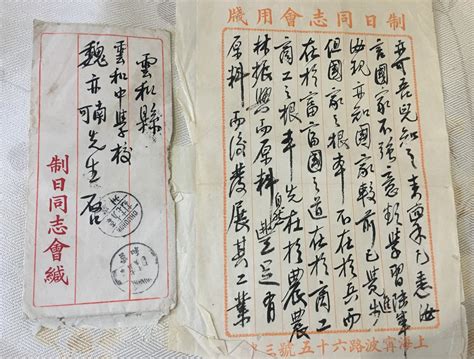 雲和縣
雲和中學校
魏亦南先生 啓
制日同志會緘
制日同志會用牋
吾兒知之來稟凡悉
言國家不強意欲學習陸軍
現亦知國家較前已覺進步
但國家之根本不在於兵而
在於富富國之道在於商工
商工之根本先在於農農
林振興而原料自然豐足有
原料而後發展其工業
上海寧波路六十五號三